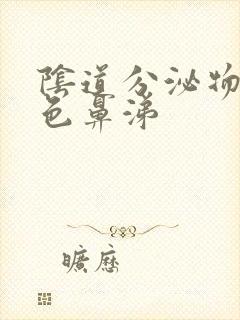 陰道分泌物
色鼻涕
曠歷